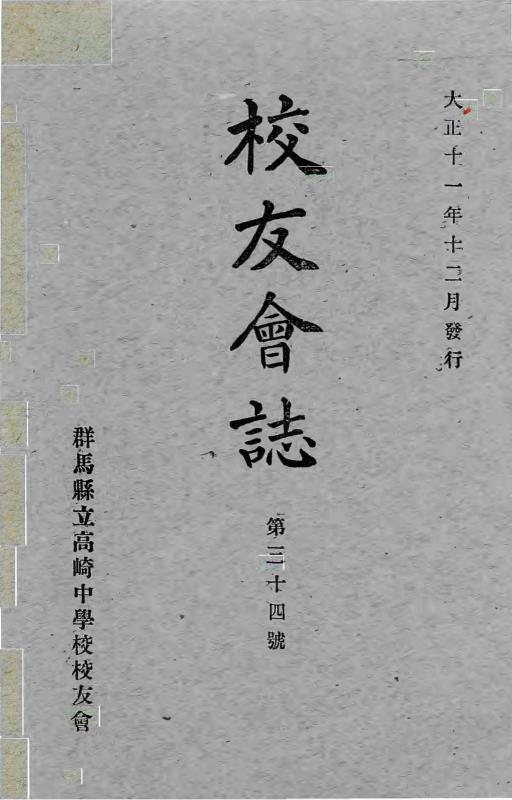 大正十一年十二月發行
校友會誌
第三十四號
群馬縣立高崎中學校校友會